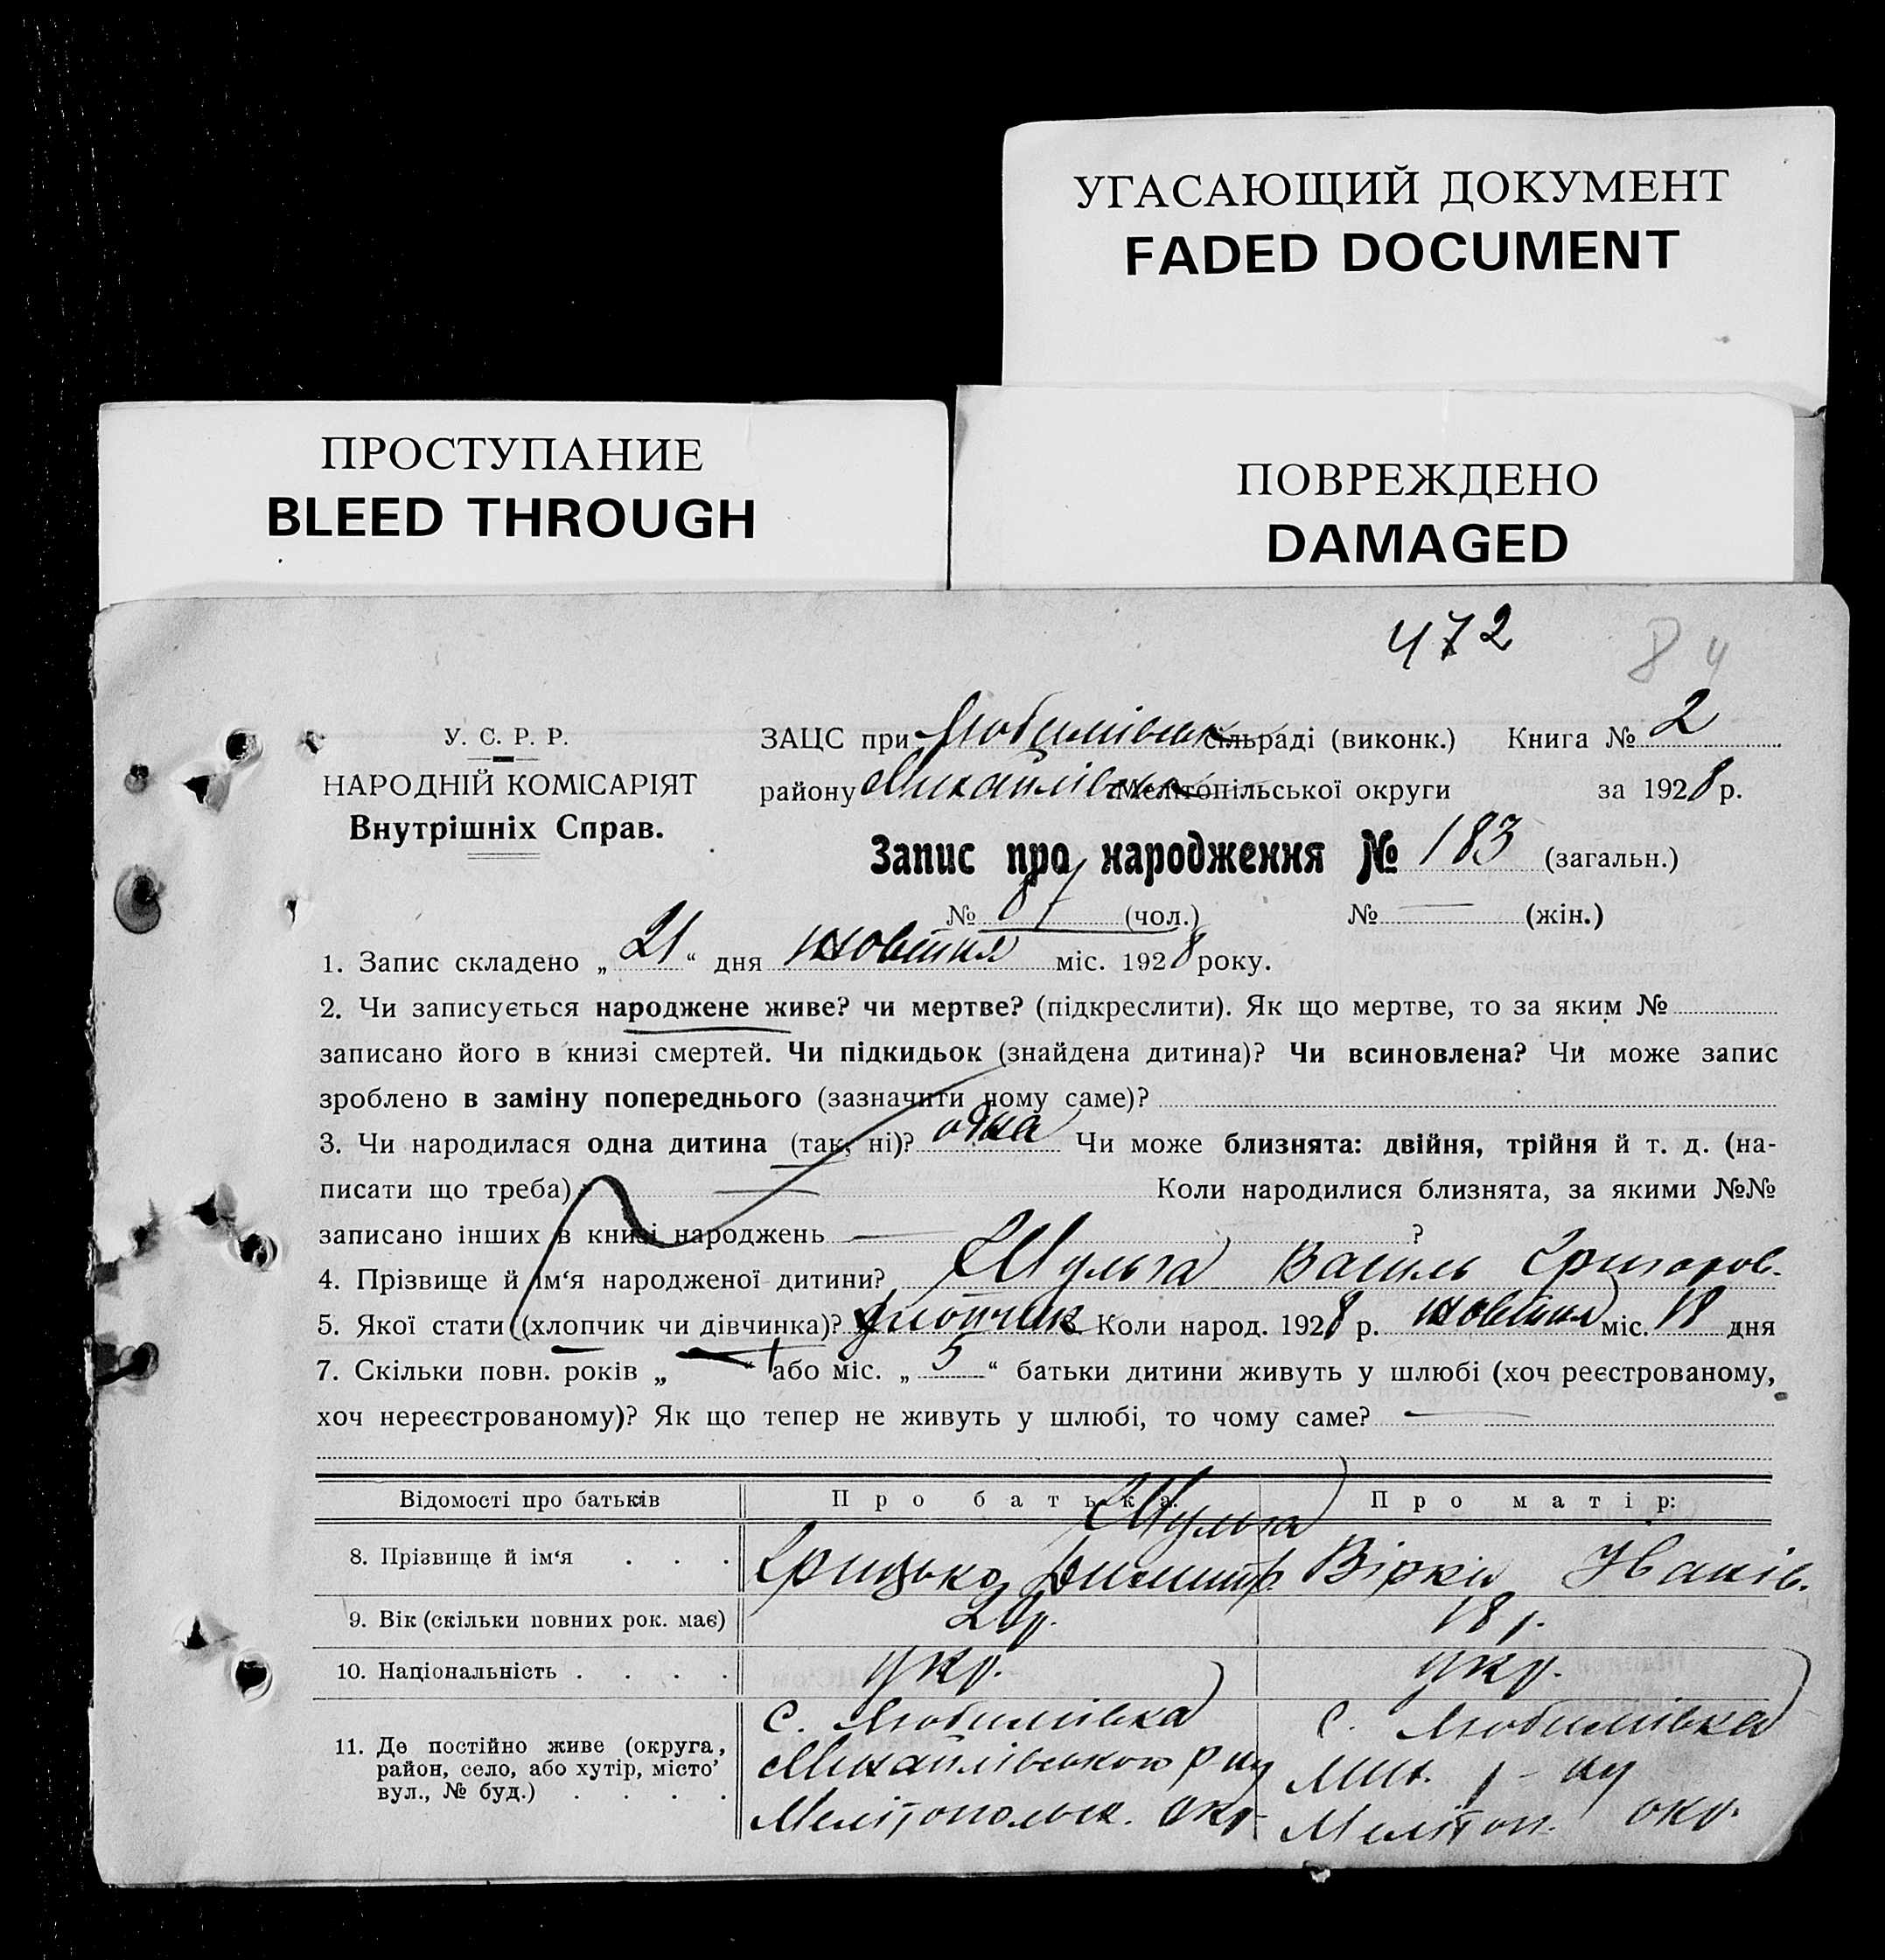 УГАСАЮЩИЙ ДОКУМЕНТ
FADED DOCUMENT
ПРОСТУПАНИЕ
BLEED THROUGH
ПОВРЕЖДЕНО
DAMAGED
472
84
У. С. Р. Р.
НАРОДНІЙ КОМІСАРІЯТ
Внутрішніх Справ.
ЗАЦС при Любимівськ сільраді (виконк.) Книга № 2
району Михайлівськ Мелітопільської округи за 1928 р.
Запис про народження № 183 (загальн.)
№ 87 (чол.) № — (жін.)
1. Запис складено „21“ дня жовтня міс. 1928 року.
2. Чи записується народжене живе? чи мертве? (підкреслити). Як що мертве, то за яким №
записано його в книзі смертей. Чи підкидьок (знайдена дитина)? Чи всиновлена? Чи може запис
зроблено в заміну попереднього (зазначити чому саме)?
3. Чи народилася одна дитина (так, ні)? одна Чи може близнята: двійня, трійня й т. д. (на-
писати що треба) — Коли народилися близнята, за якими №№
записано інших в книзі народжень — ?
4. Прізвище й ім‘я народженої дитини? Шульга Василь Григоров.
5. Якої стати (хлопчик чи дівчинка)? хлопчик Коли народ. 1928 р. жовтня міс. 18 дня
7. Скільки повн. років „ — “ або міс. „ 5 “ батьки дитини живуть у шлюбі (хоч реєстрованому,
хоч нереєстрованому)? Як що тепер не живуть у шлюбі, то чому саме? —
Відомості про батьків Про батька: Про матір:
Шульга
8. Прізвище й ім‘я . . . Грицько Димитр. Вірки Іванів.
9. Вік (скільки повних рок. має) 20 р. 18 р.
10. Національність . . . . укр. укр.
11. Де постійно живе (округа, район, село, або хутір, місто, вул., № буд.) . . . .
с. Любимівка с. Любимівка
Михайлівського р-ну Мих. р-ну
Мелітопольск. окр. Мелітоп. окр.